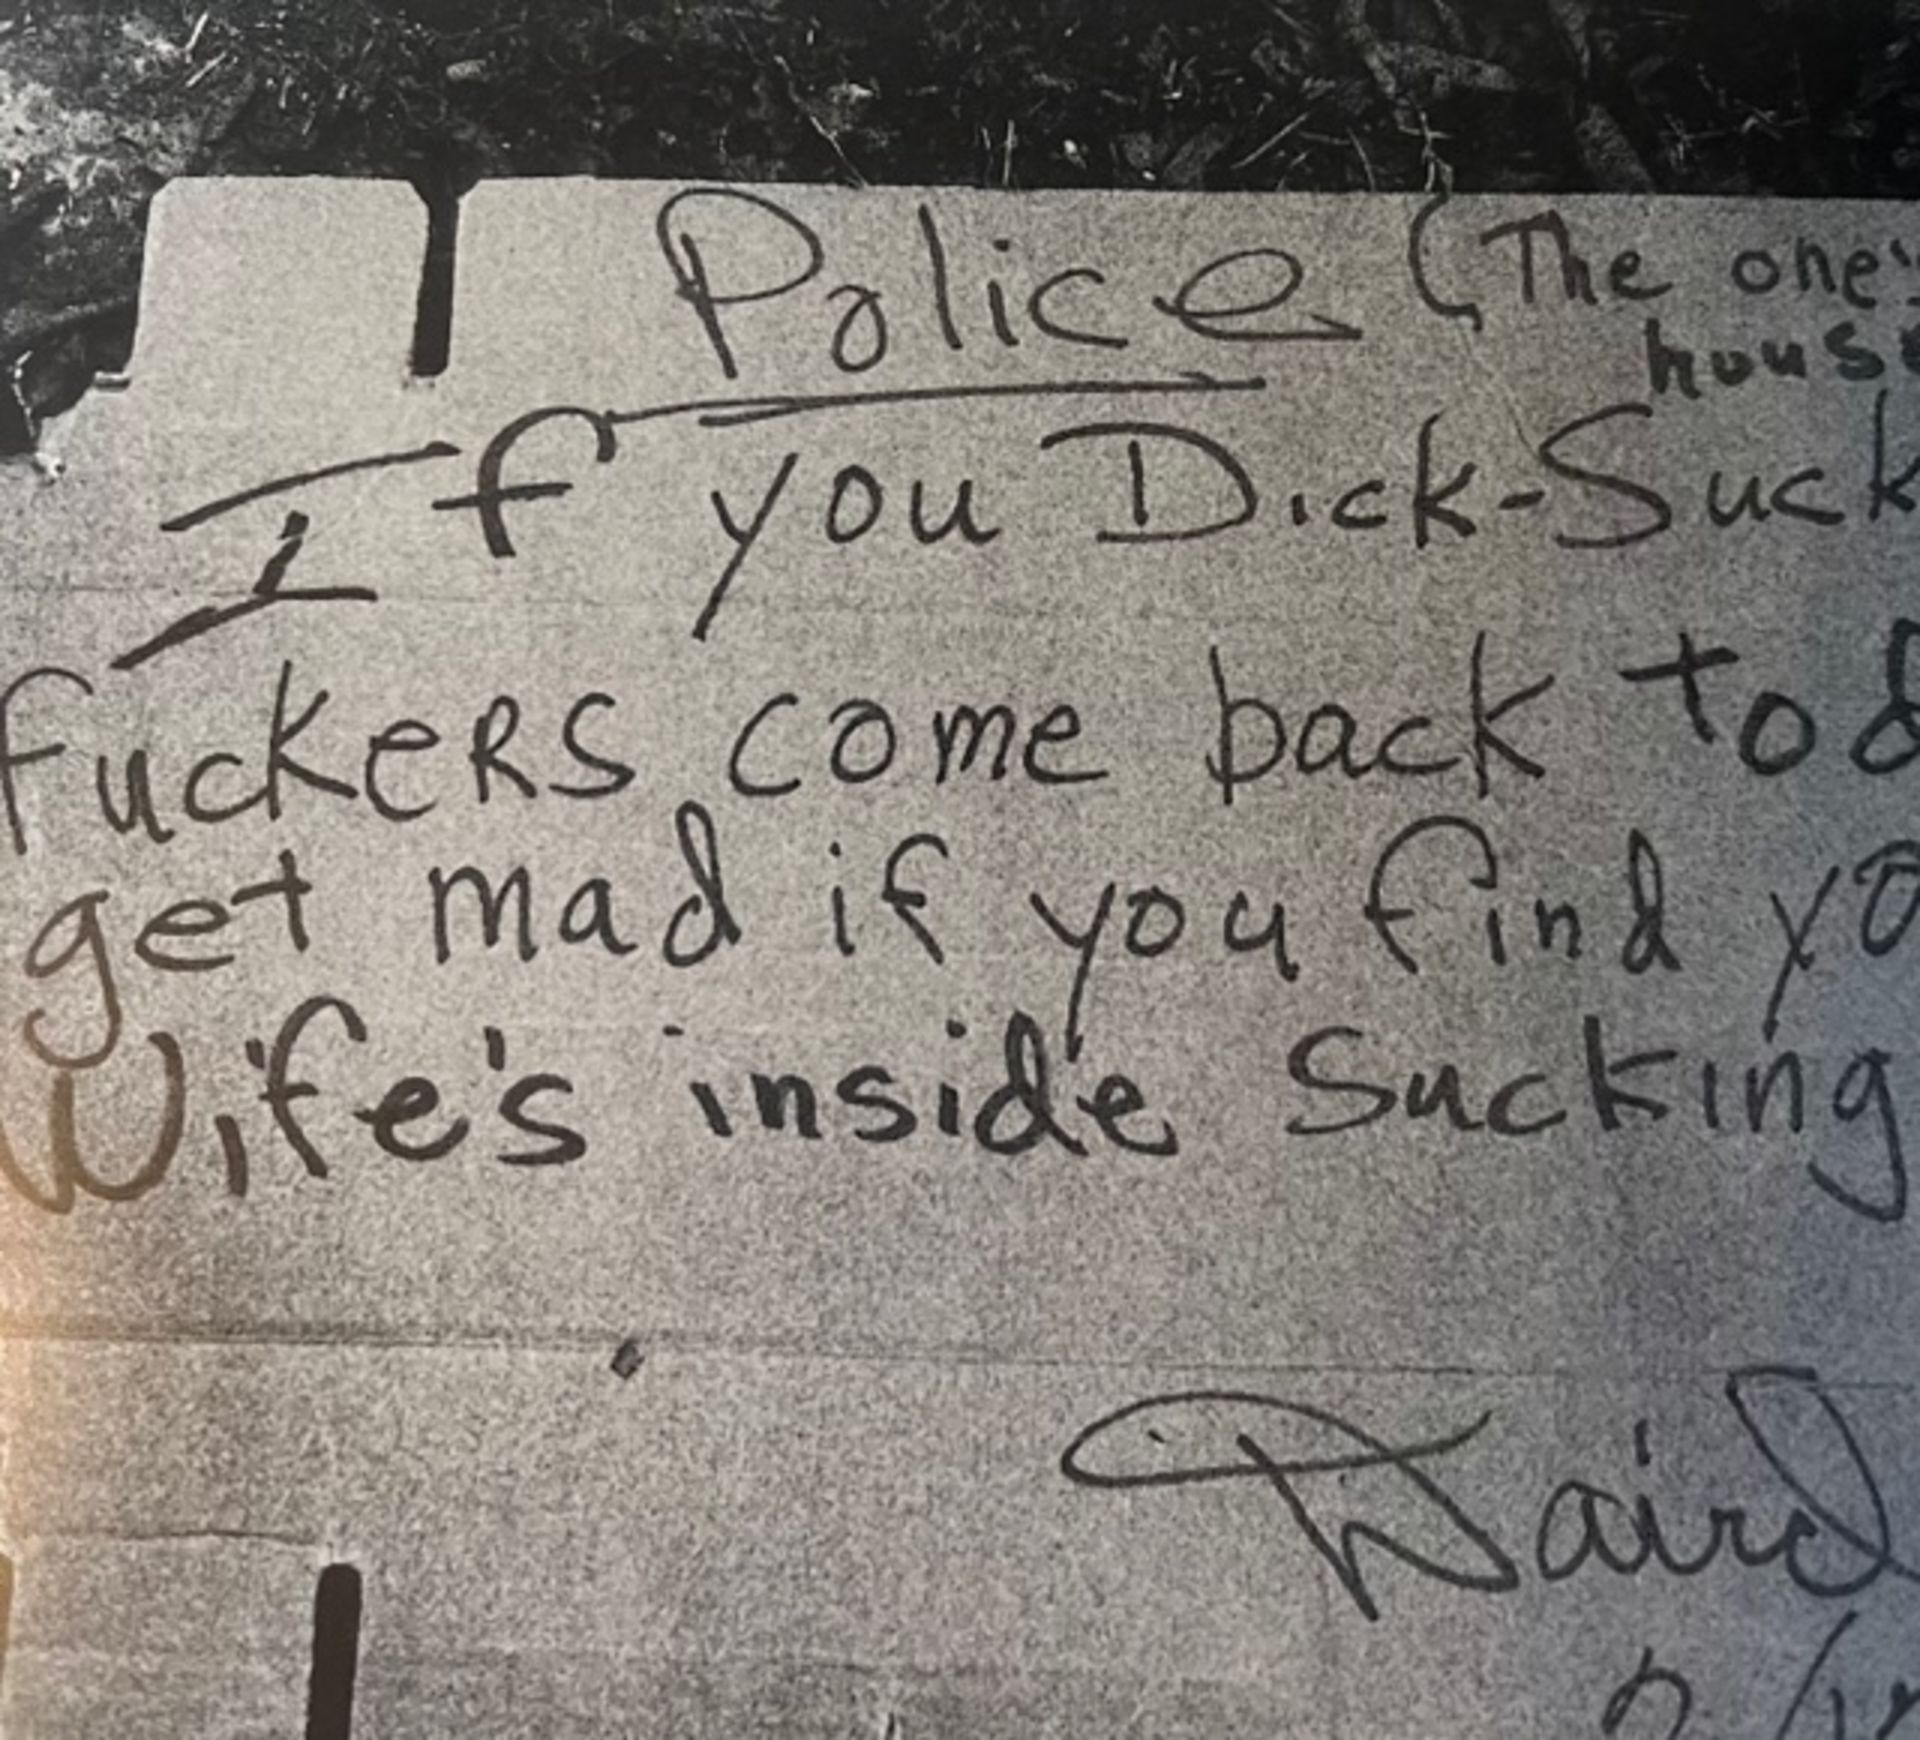 Police (The one's
house
If you Dick-Suck
fuckers come back tod
get mad if you find yo
Wife's inside Sucking